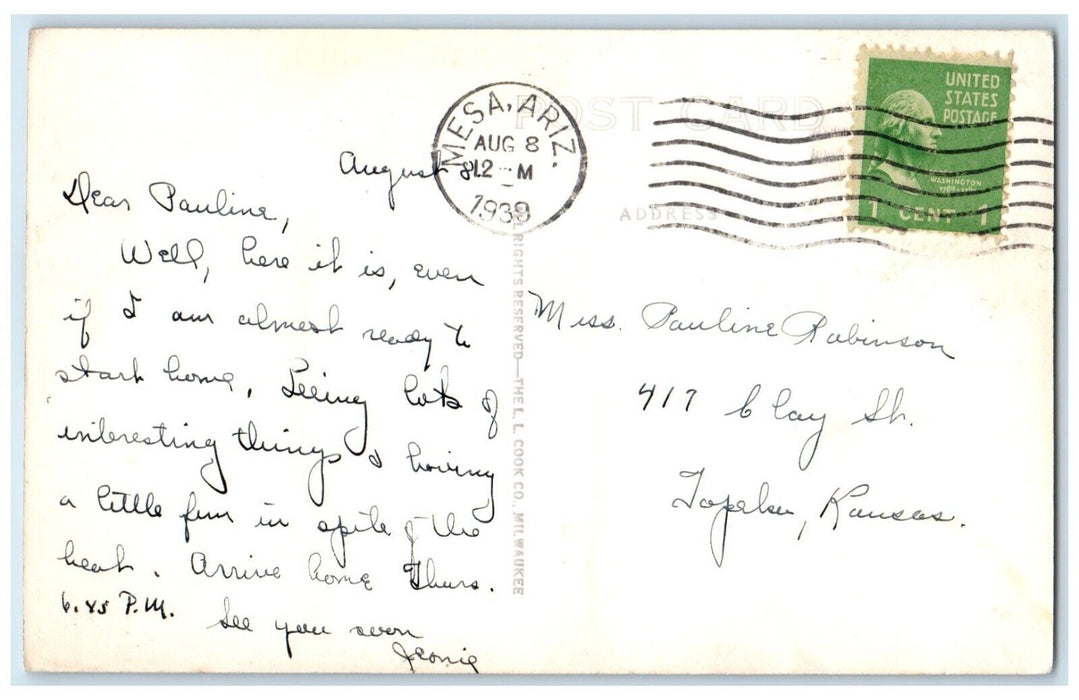 POST CARD
MESA, ARIZ.
AUG 8
12 M
1939
UNITED
STATES
POSTAGE
WASHINGTON
1 CENT 1
ADDRESS
August 8
Dear Pauline,
Well, here it is, even
if I am almost ready to
start home. Seeing lots of
interesting things & having
a little fun in spite of the
heat. Arrive home Thurs.
6:45 P.M. See you soon
ALL RIGHTS RESERVED—THE L. L. COOK CO., MILWAUKEE
Miss. Pauline Robinson
417 Clay St.
Topeka, Kansas.